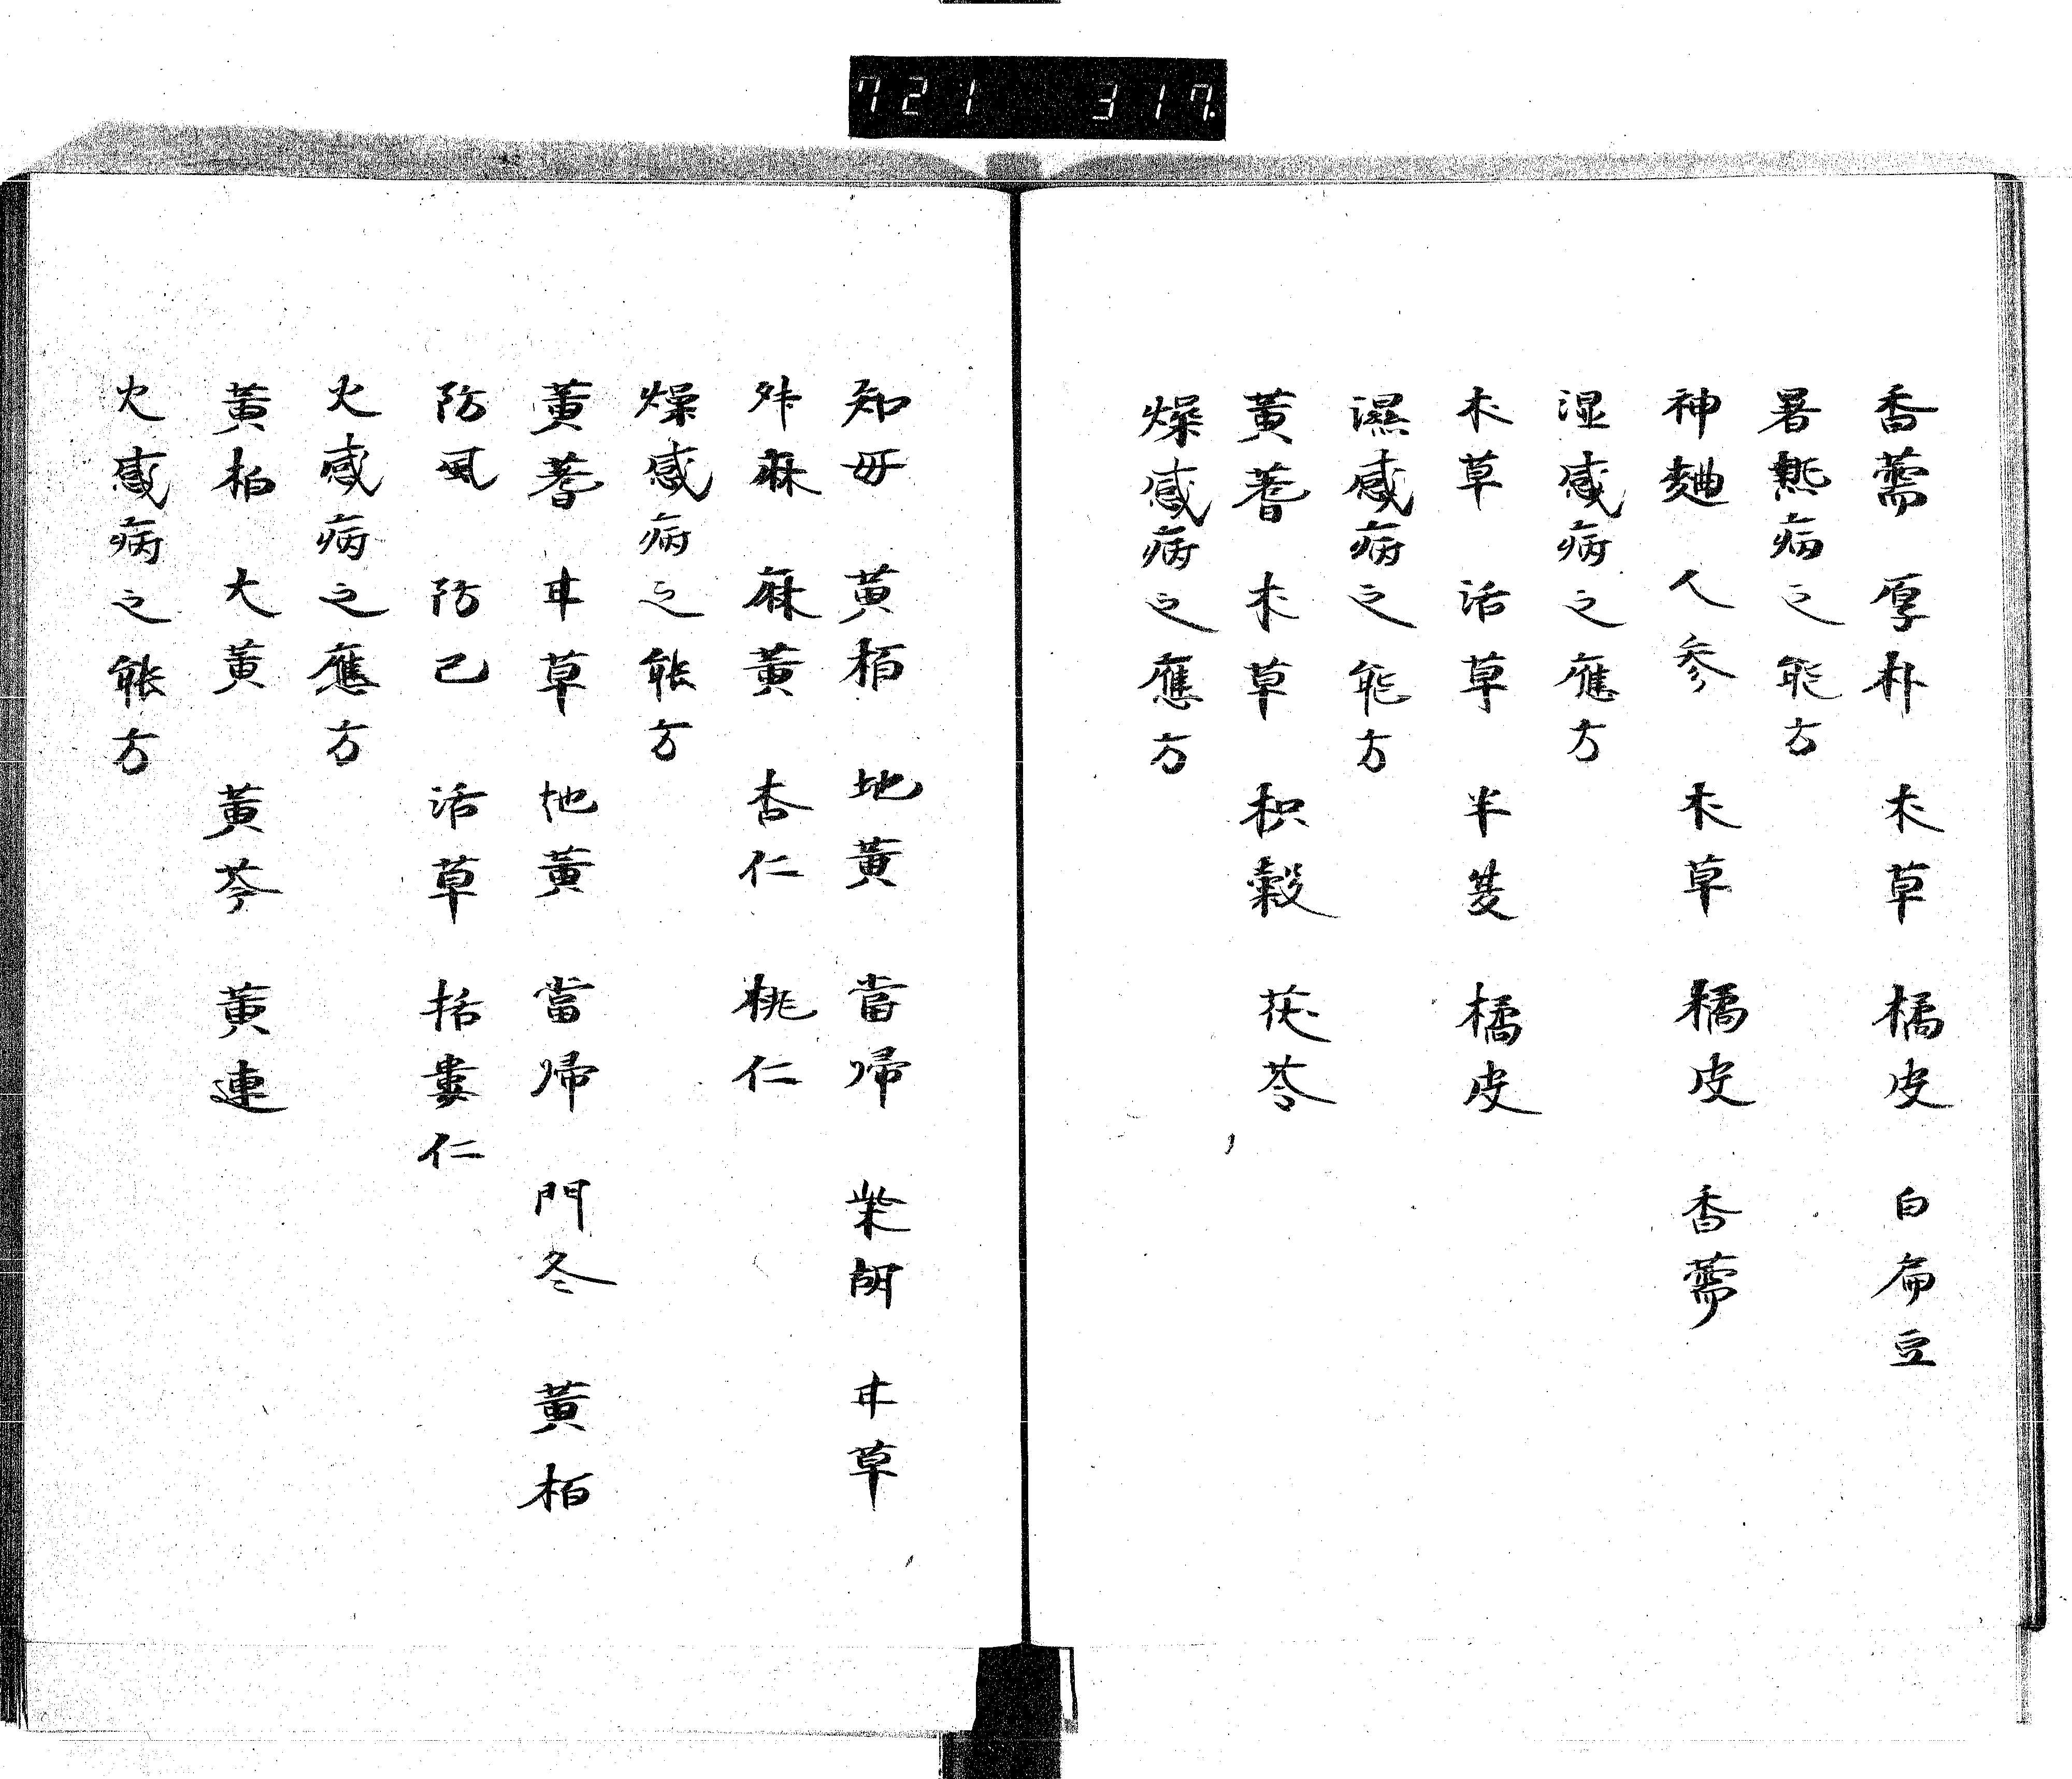 721 317
香薷 厚朴 朮草 橘皮 白扁豆
暑熱病之能方
神麯 人參 朮草 橘皮 香薷
湿感病之應方
朮草 活草 半夏 橘皮
濕感病之能方
黃蓍 朮草 枳穀 茯苓
燥感病之應方
知母 黃栢 地黃 當帰 柴胡 甘草
升麻 麻黃 杏仁 桃仁
燥感病之能方
黃蓍 甘草 地黃 當帰 門冬 黃栢
防風 防己 活草 括蔞仁
火感病之應方
黃柏 大黃 黃芩 黃連
火感病之能方